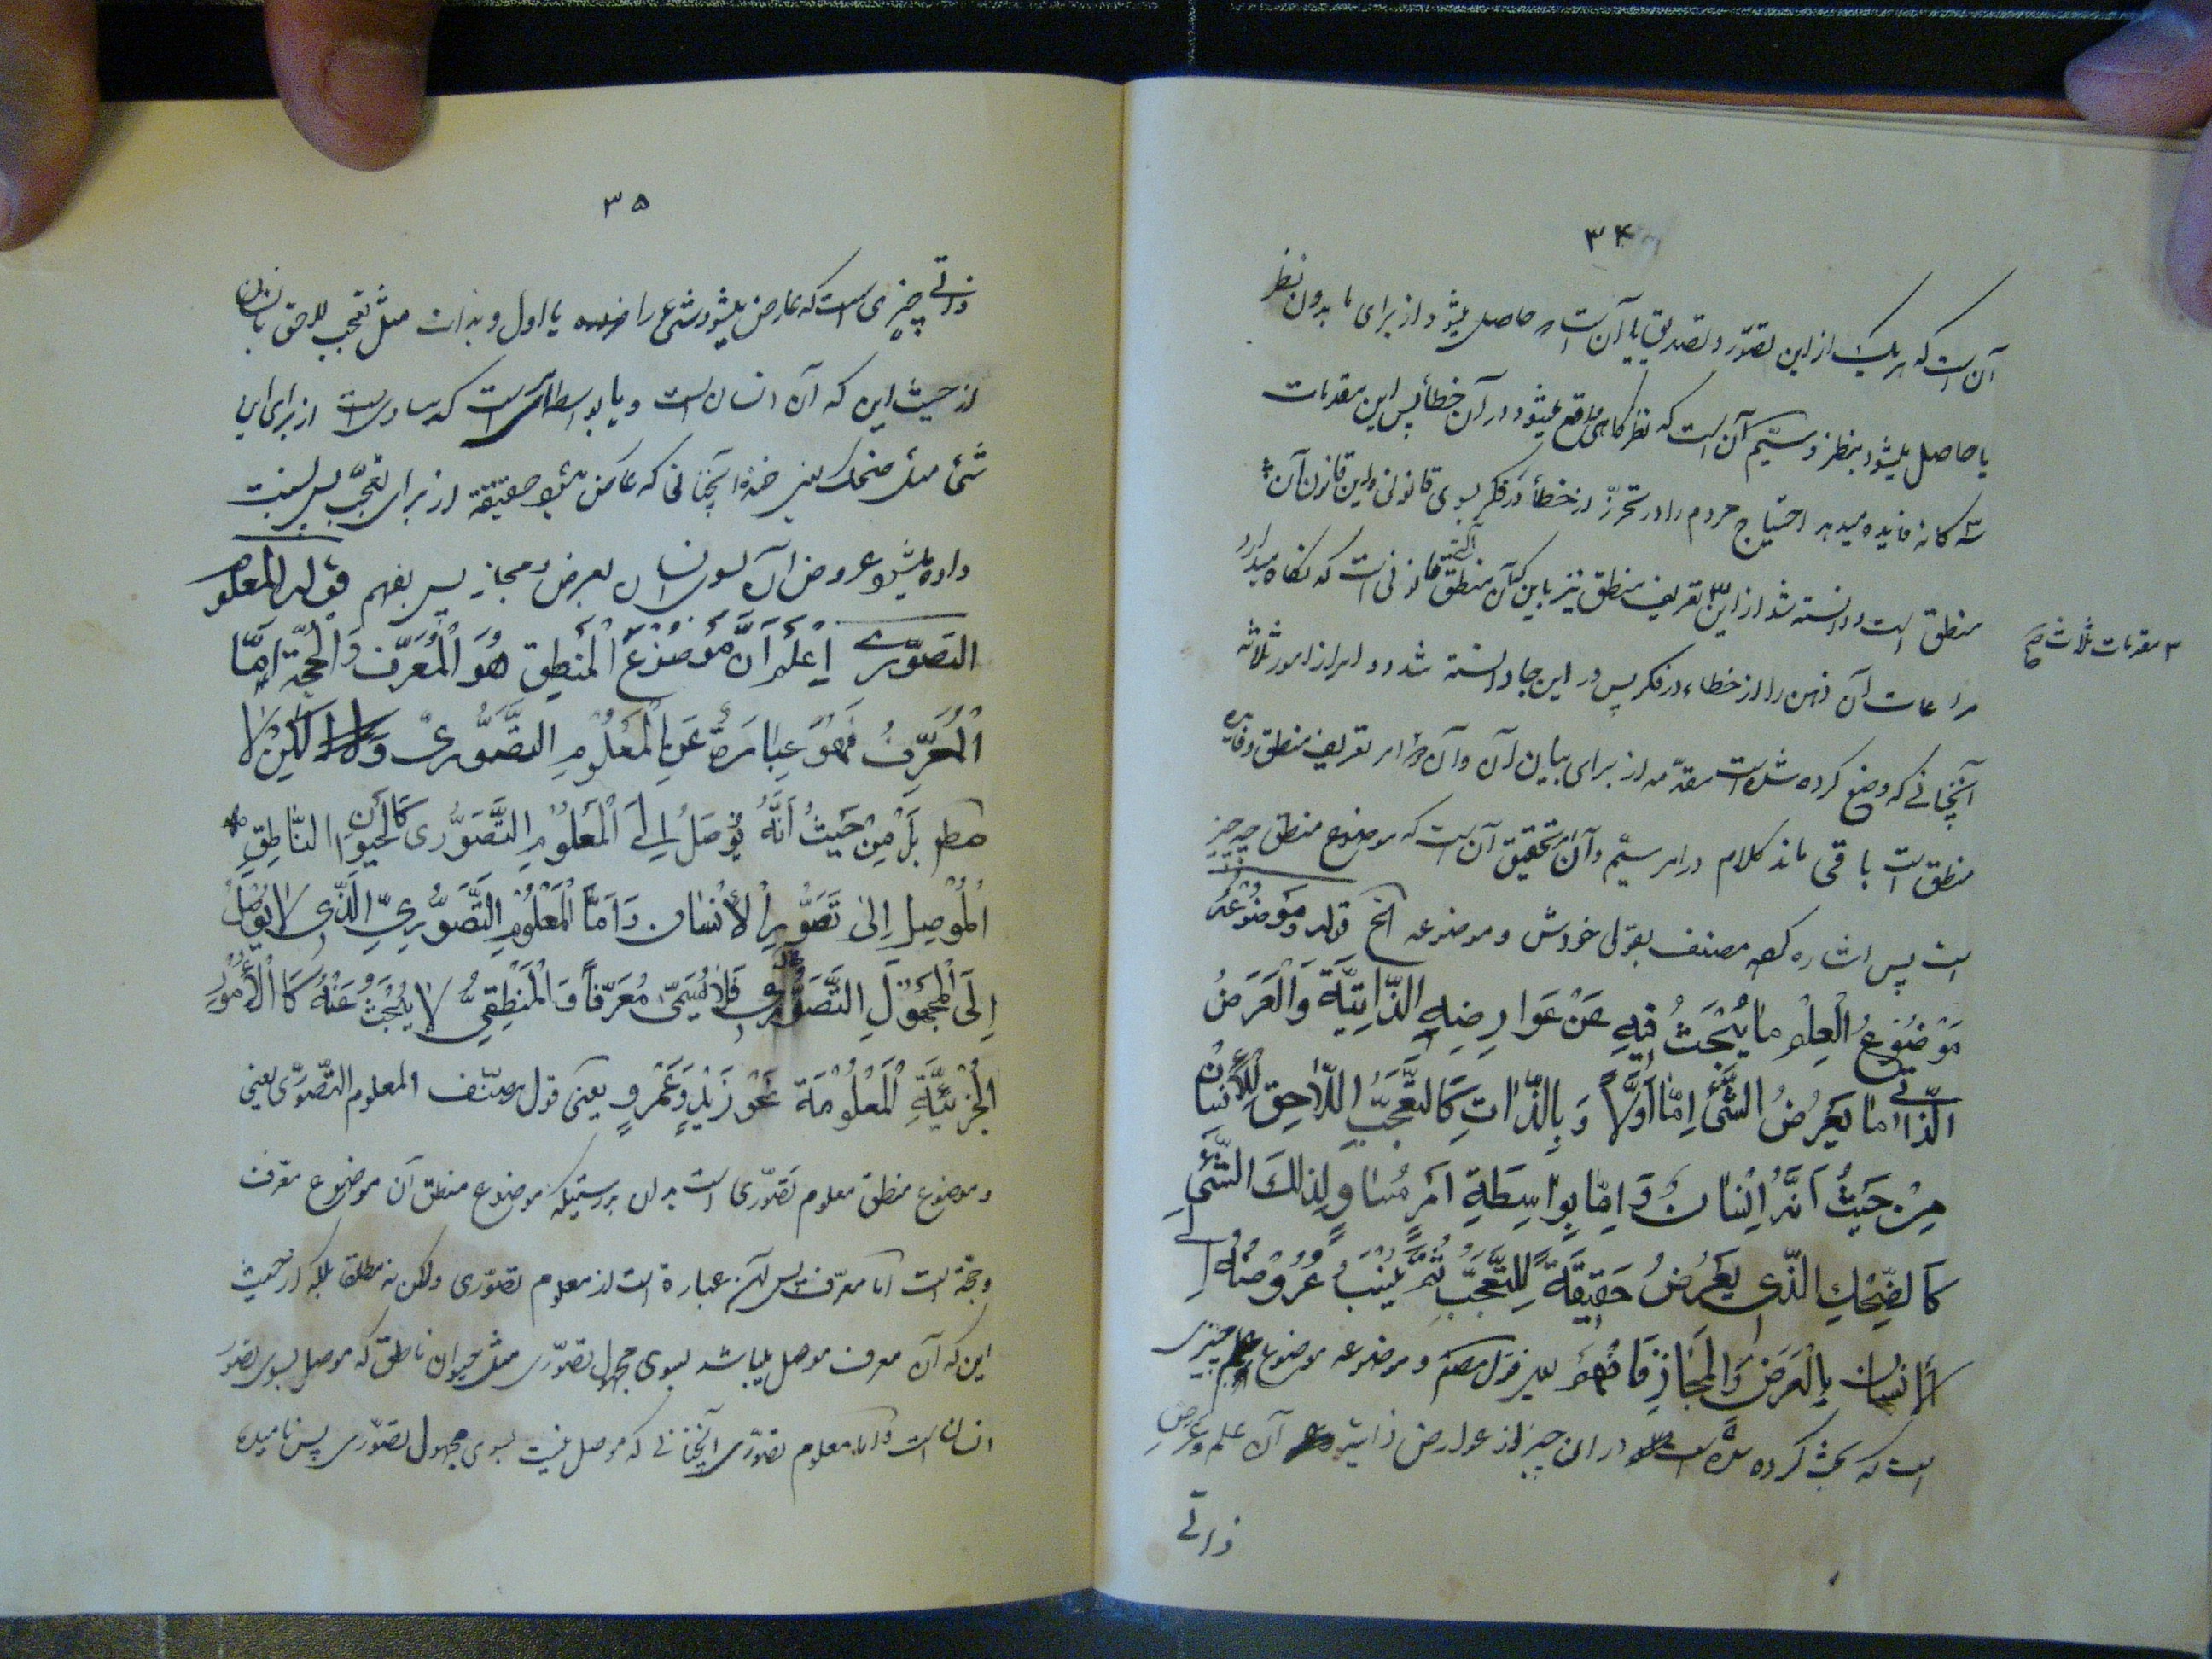 ۳۴
آن است که هر یک از این تصوّر و تصدیق یا آن است که حاصل میشود از برای ما بدون نظر
یا حاصل میشود بنظر و سیّم آن است که نظر کاهی واقع میشود در آن خطأ پس این مقدمات
سه کانه فایده میدهد احتیاج مردم را در تحرّز از خطأ در فکر بسوی قانونی و این قانون آن
منطق است و دانسته شد از این تعریف منطق نیز باین که آن منطق قانونی است که نکاه میدارد
۳ مقدمات ثلاث صح
مراعات آن ذهن را از خطاء در فکر پس در این جا دانسته شد دو امر از امور ثلاثه
آنچنانی که وضع کرده شده است مقدّمه از برای بیان آن و آن دو امر تعریف منطق و فایده
منطق است باقی ماند کلام در امر سیّم و آن تحقیق آن است که موضوع منطق چه چیز
است پس اشاره کرد مصنف بقول خودش و موضوعه الخ قوله وَمَوْضُوْعُهُ
مَوْضُوْعُ الْعِلْمِ مٰا يُبْحَثُ فِيْهِ عَنْ عَوٰارِضِهِ الذّٰاتِيَّةِ وَالْعَرَضُ
الذّٰاتی مٰا يَعْرِضُ الشَّئَ اِمّٰا اَوَّلاً وَ بِالذّٰاتِ كَالتَّعَجُّبِ اللّاٰحِقِ لِلْاِنْسٰانِ
مِنْ حَيْثُ اَنَّهُ اِنْسٰانٌ وَ اِمّٰا بِوٰاسِطَةِ اَمْرٍ مُسٰاوٍ لِذٰلِكَ الشَّئِ
كَالضِّحْكِ الَّذى يَعْرِضُ حَقِيْقَةً لِلتَّعَجُّبِ ثُمَّ يُنْسَبُ عُرُوْضُهُ اِلَى
الْاِنْسٰانِ بِالْعَرَضِ وَالْمَجٰازِ فَافْهَمْ یعنی قول مصنف و موضوعه موضوع علم چیزی
است که بحث کرده شده است در آن چیز از عوارض ذاتیه آن علم و عرض
ذاتی
۳۵
ذاتی چیزی است که عارض میشود شئ را یا اول و بذات مثل تعجب للاحق بانسان
از حیث این که آن انسان است و یا بواسطه امری است که مساوی است از برای این
شئ مثل ضحک یعنی خنده آنچنانی که عارض میشود حقیقة از برای تعجّب پس نسبت
داده میشود عروض آن بسوی انسان بعرض و مجاز پس بفهم قوله المعلوم
التصوّری اِعْلَمْ اَنَّ مَوْضُوْعَ الْمَنْطِقِ هُوَ الْمُعَرِّفُ وَالْحُجَّةُ اَمَّا
الْمُعَرِّفُ فَهُوَ عِبٰارَةٌ عَنِ الْمَعْلُوْمِ التَّصَوُّرىِّ لٰكِنْ لاٰ
مطلقا بَلْ مِنْ حَيْثُ اَنَّهُ يُوْصَلُ اِلَى الْمَعْلُوْمِ التَّصَوُّرى كَالْحَيْوٰانِ النّٰاطِقِ
الْمُوْصِلِ اِلىٰ تَصَوُّرِ الْاِنْسٰانِ وَ اَمَّا الْمَعْلُوْمُ التَّصَوُّرِىِّ الَّذى لاٰ يُوْصَلُ
اِلَى الْمَجْهُوْلِ التَّصَوُّرى فَلاٰ يُسَمّىٰ مُعَرِّفاً وَ الْمَنْطِقِىُّ لاٰ يُبْحَثُ عَنْهُ كَالْاُمُوْرِ
الْجُزْئِيَّةِ الْمَعْلُوْمَةِ نَحْوُ زَيْدٍ وَعَمْرٍو یعنی قول مصنّف المعلوم التّصوّری یعنی
و موضوع منطق معلوم تصوّری است بدان بدرستیکه موضوع منطق آن موضوع معرّف
وحجّة است اما معرّف پس آن عبارة است از معلوم تصوّری ولکن نه مطلقا بلکه از حیث
این که آن معرف موصل میباشد بسوی مجهول تصوّری مثل حیوان ناطق که موصل بسوی تصوّر
انسان است و اما معلوم تصوّری آنچنانی که موصل نیست بسوی مجهول تصوّری پس نامیده